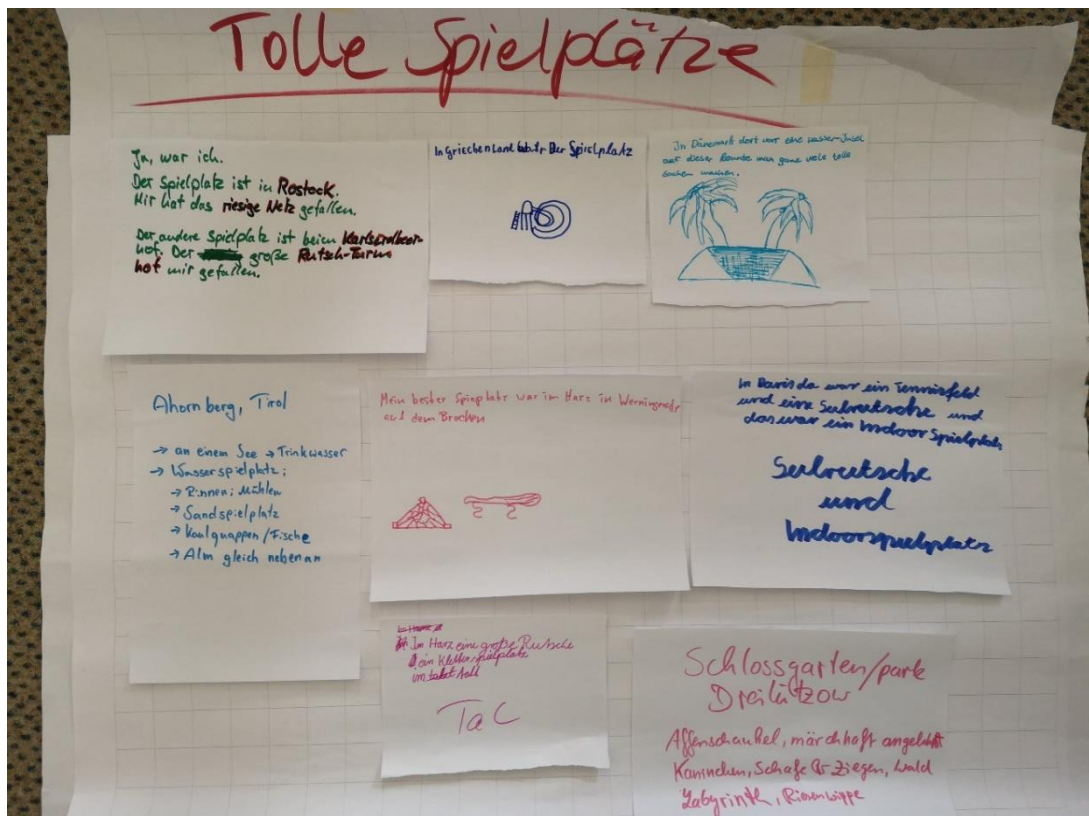 Tolle Spielplätze
Ja, war ich.
Der Spielplatz ist in Rostock.
Mir hat das riesige Netz gefallen.
Der andere Spielplatz ist beim
hof. Der große Rutsch-Turm
hat mir gefallen.
In Griechenland Der Spielplatz
In Dänemark dort war eine Wasser-Insel
auf dieser konnte man ganz viele tolle
Sachen machen.
Ahornberg, Tirol
→ an einem See → Trinkwasser
→ Wasserspielplatz:
→ Rinnen; Mühlen
→ Sandspielplatz
→ Kaulquappen/Fische
→ Alm gleich nebenan
Mein bester Spieplatz war im Harz in
auf dem Brocken
In da war ein Tennisfeld
und eine Seilrutsche und
das war ein Indoorspielplatz
Seilrutsche
und
Indoorspielplatz
Im Harz eine große Rutsche
ein Kletterspielplatz
im
Schlossgarten/park
Dreilützow
Affenschaukel, märchhaft
Kaninchen, Schafe & Ziegen, Wald
Labyrinth, Riesenwippe